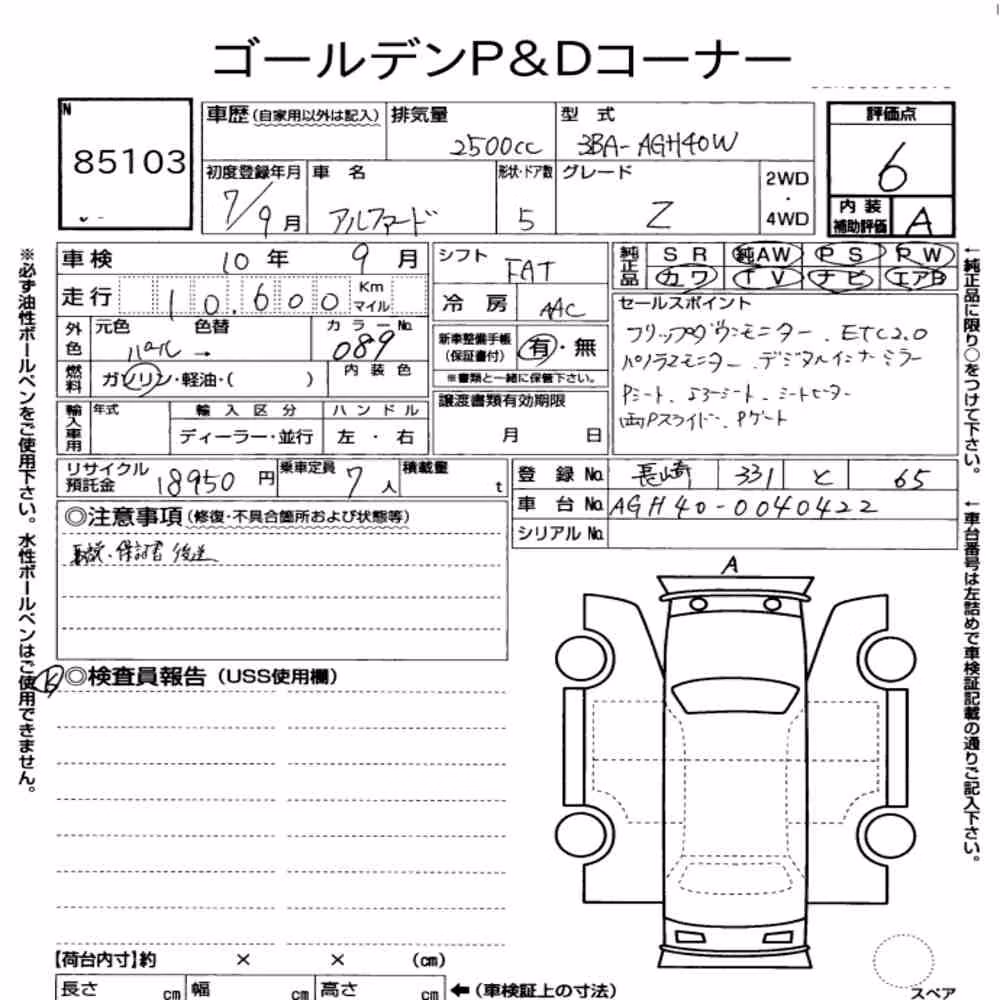 ゴールデンP&Dコーナー
N
85103
車歴 (自家用以外は記入)
排気量
2500cc
型 式
3BA-AGH40W
評価点
6
初度登録年月
7/9月
車 名
アルファード
形状・ドア数
5
グレード
Z
2WD
・
4WD
内 装
補助評価
A
車検
10年 9月
シフト
FAT
純正品
SR 純AW PS PW
カワ TV ナビ エアB
走行
10,600
Km
マイル
冷 房
AAC
セールスポイント
フリップダウンモニター . ETC2.0
パノラマモニター . デジタルインナーミラー
Pシート . エアーシート . シートヒーター
両Pスライド . Pゲート
外色
元色
パール
色替
→
カラーNo.
089
新車整備手帳
(保証書付)
有・無
※書類と一緒に保管下さい。
燃料
ガソリン・軽油・( )
内装色
輸入車用
年式
輸入区分
ディーラー・並行
ハンドル
左 ・ 右
譲渡書類有効期限
月 日
リサイクル
預託金
18950円
乗車定員
7人
積載量
t
登録No.
長崎 331 と 65
車台No.
AGH40-0040422
シリアルNo.
◎注意事項 (修復・不具合箇所および状態等)
取説・保証書 後送
◎検査員報告 (USS使用欄)
A
【荷台内寸】約 × × (cm)
長さ cm 幅 cm 高さ cm
←(車検証上の寸法)
スペア
※必ず油性ボールペンをご使用下さい。水性ボールペンはご使用できません。
←純正品に限り○をつけて下さい。
←車台番号は左詰めで車検証記載の通りご記入下さい。